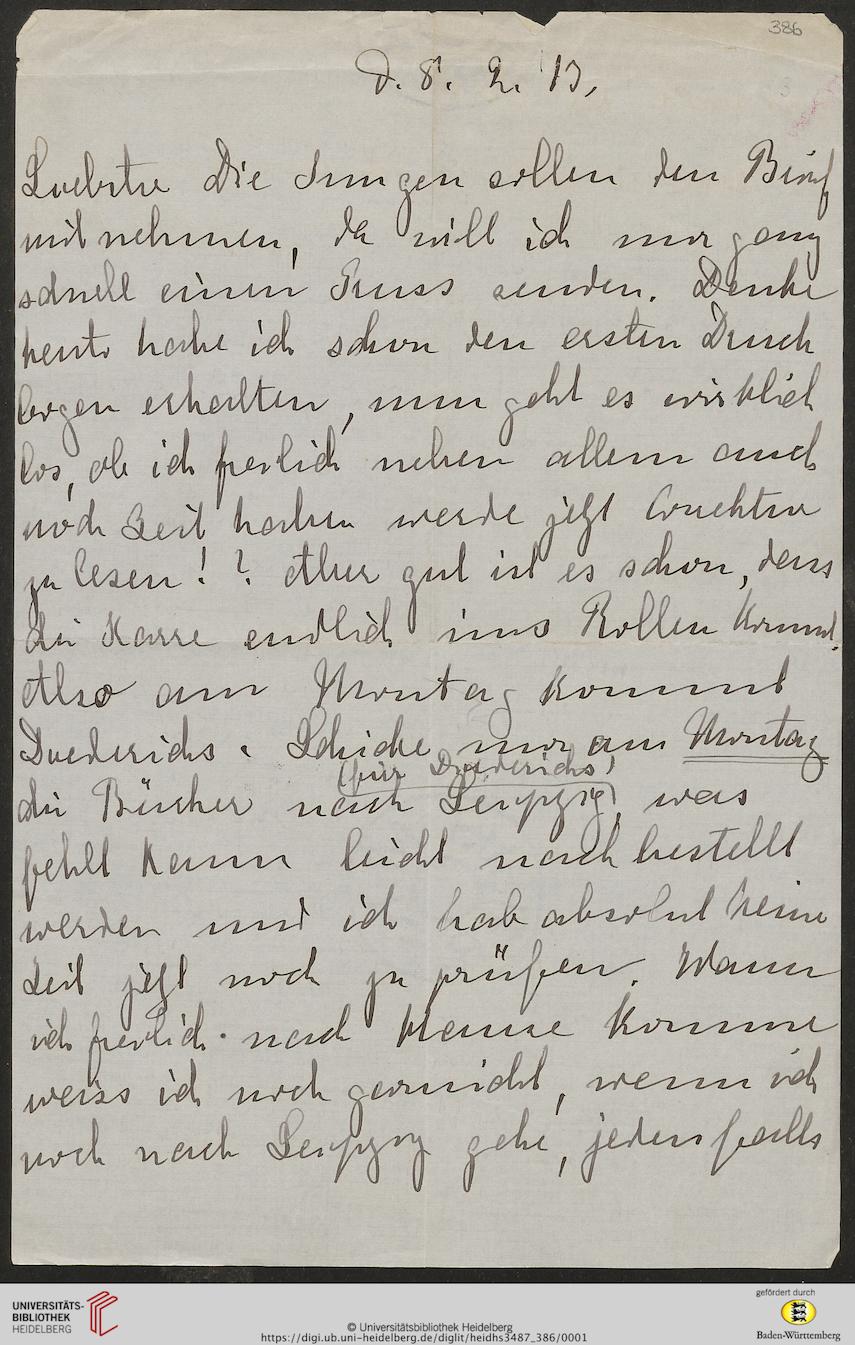 386
d. 8. 2. 13.
Liebste Die Jungen sollen den Brief
mitnehmen, da will ich nur ganz
schnell einen Gruss senden. Denke
heute habe ich schon den ersten Druck
bogen erhalten, nun geht es wirklich
los, ob ich freilich neben allem auch
noch Zeit haben werde jetzt Correktur
zu lesen!? Aber gut ist es schon, dass
die Karre endlich ins Rollen kommt.
Also am Montag kommt
Diederichs. Schicke nur am Montag
(für Diederichs)
die Bücher nach Leipzig, was
fehlt kann leicht nach bestellt
werden und ich hab absolut keine
Zeit jetzt noch zu prüfen. Wann
ich freilich nach Hause komme
weiss ich noch garnicht, wenn ich
noch nach Leipzig gehe, jedenfalls
UNIVERSITÄTS-
BIBLIOTHEK
HEIDELBERG
© Universitätsbibliothek Heidelberg
https://digi.ub.uni-heidelberg.de/diglit/heidhs3487_386/0001
gefördert durch
Baden-Württemberg